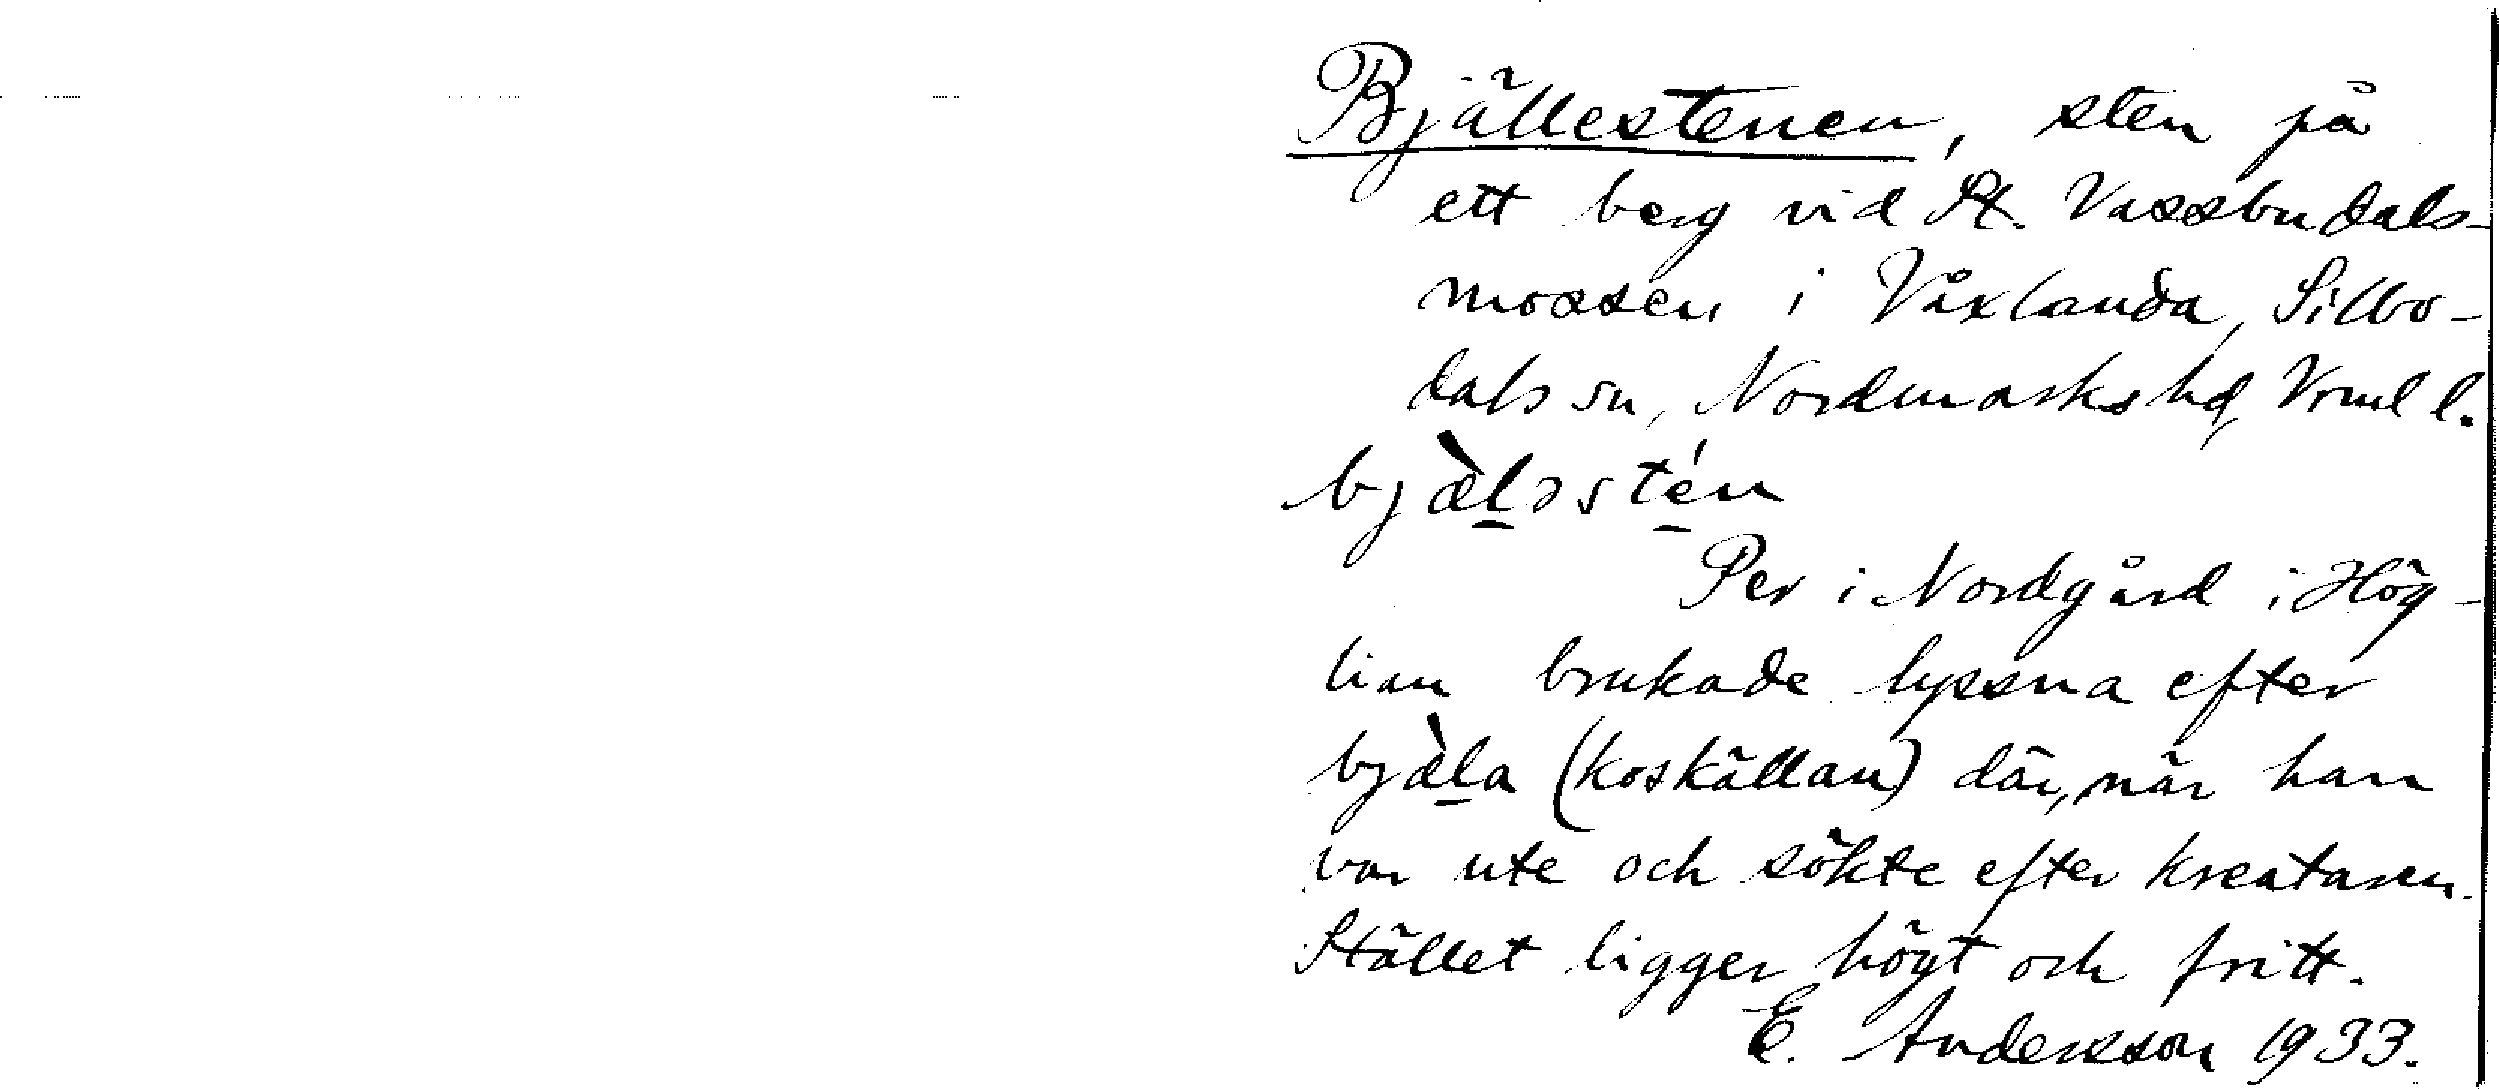 Bjällestenen, sten på
ett berg vid St. Vassbudals-
mossen i Våxlanda, Silbo-
dals sn, Nordmarks hd, Vrml l.
bjæ̀ləstén
Per i Nordgård i Hög-
lian brukade lyssna efter
bjæ̀la (koskällan) där, när han
var ute och sökte efter kreaturen.
Stället ligger högt och fritt.
E. Andersson 1933.